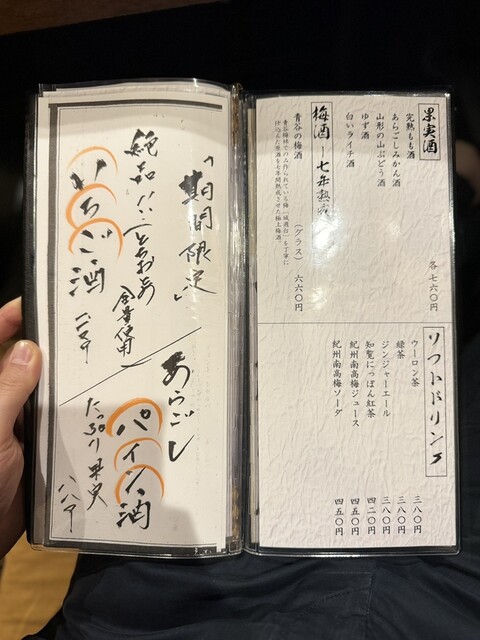 果実酒
完熟もも酒
あらごしみかん酒
山形の山ぶどう酒
ゆず酒
白いライチ酒
各七六〇円
梅酒―七年熟
青谷の梅酒
青谷梅林でのみ作られている梅「城州白」を丁寧に
仕込んだ原酒を七年間熟成させた極上梅酒
(グラス) 六六〇円
ソフトドリンク
ウーロン茶 三八〇円
緑茶 三八〇円
ジンジャーエール 三八〇円
知覧にっぽん紅茶 四二〇円
紀州南高梅ジュース 四五〇円
紀州南高梅ソーダ 四五〇円
「期間限定」
絶品!!
とちおとめ
使用
いちご酒
あらごし
パイン酒
たっぷり果実